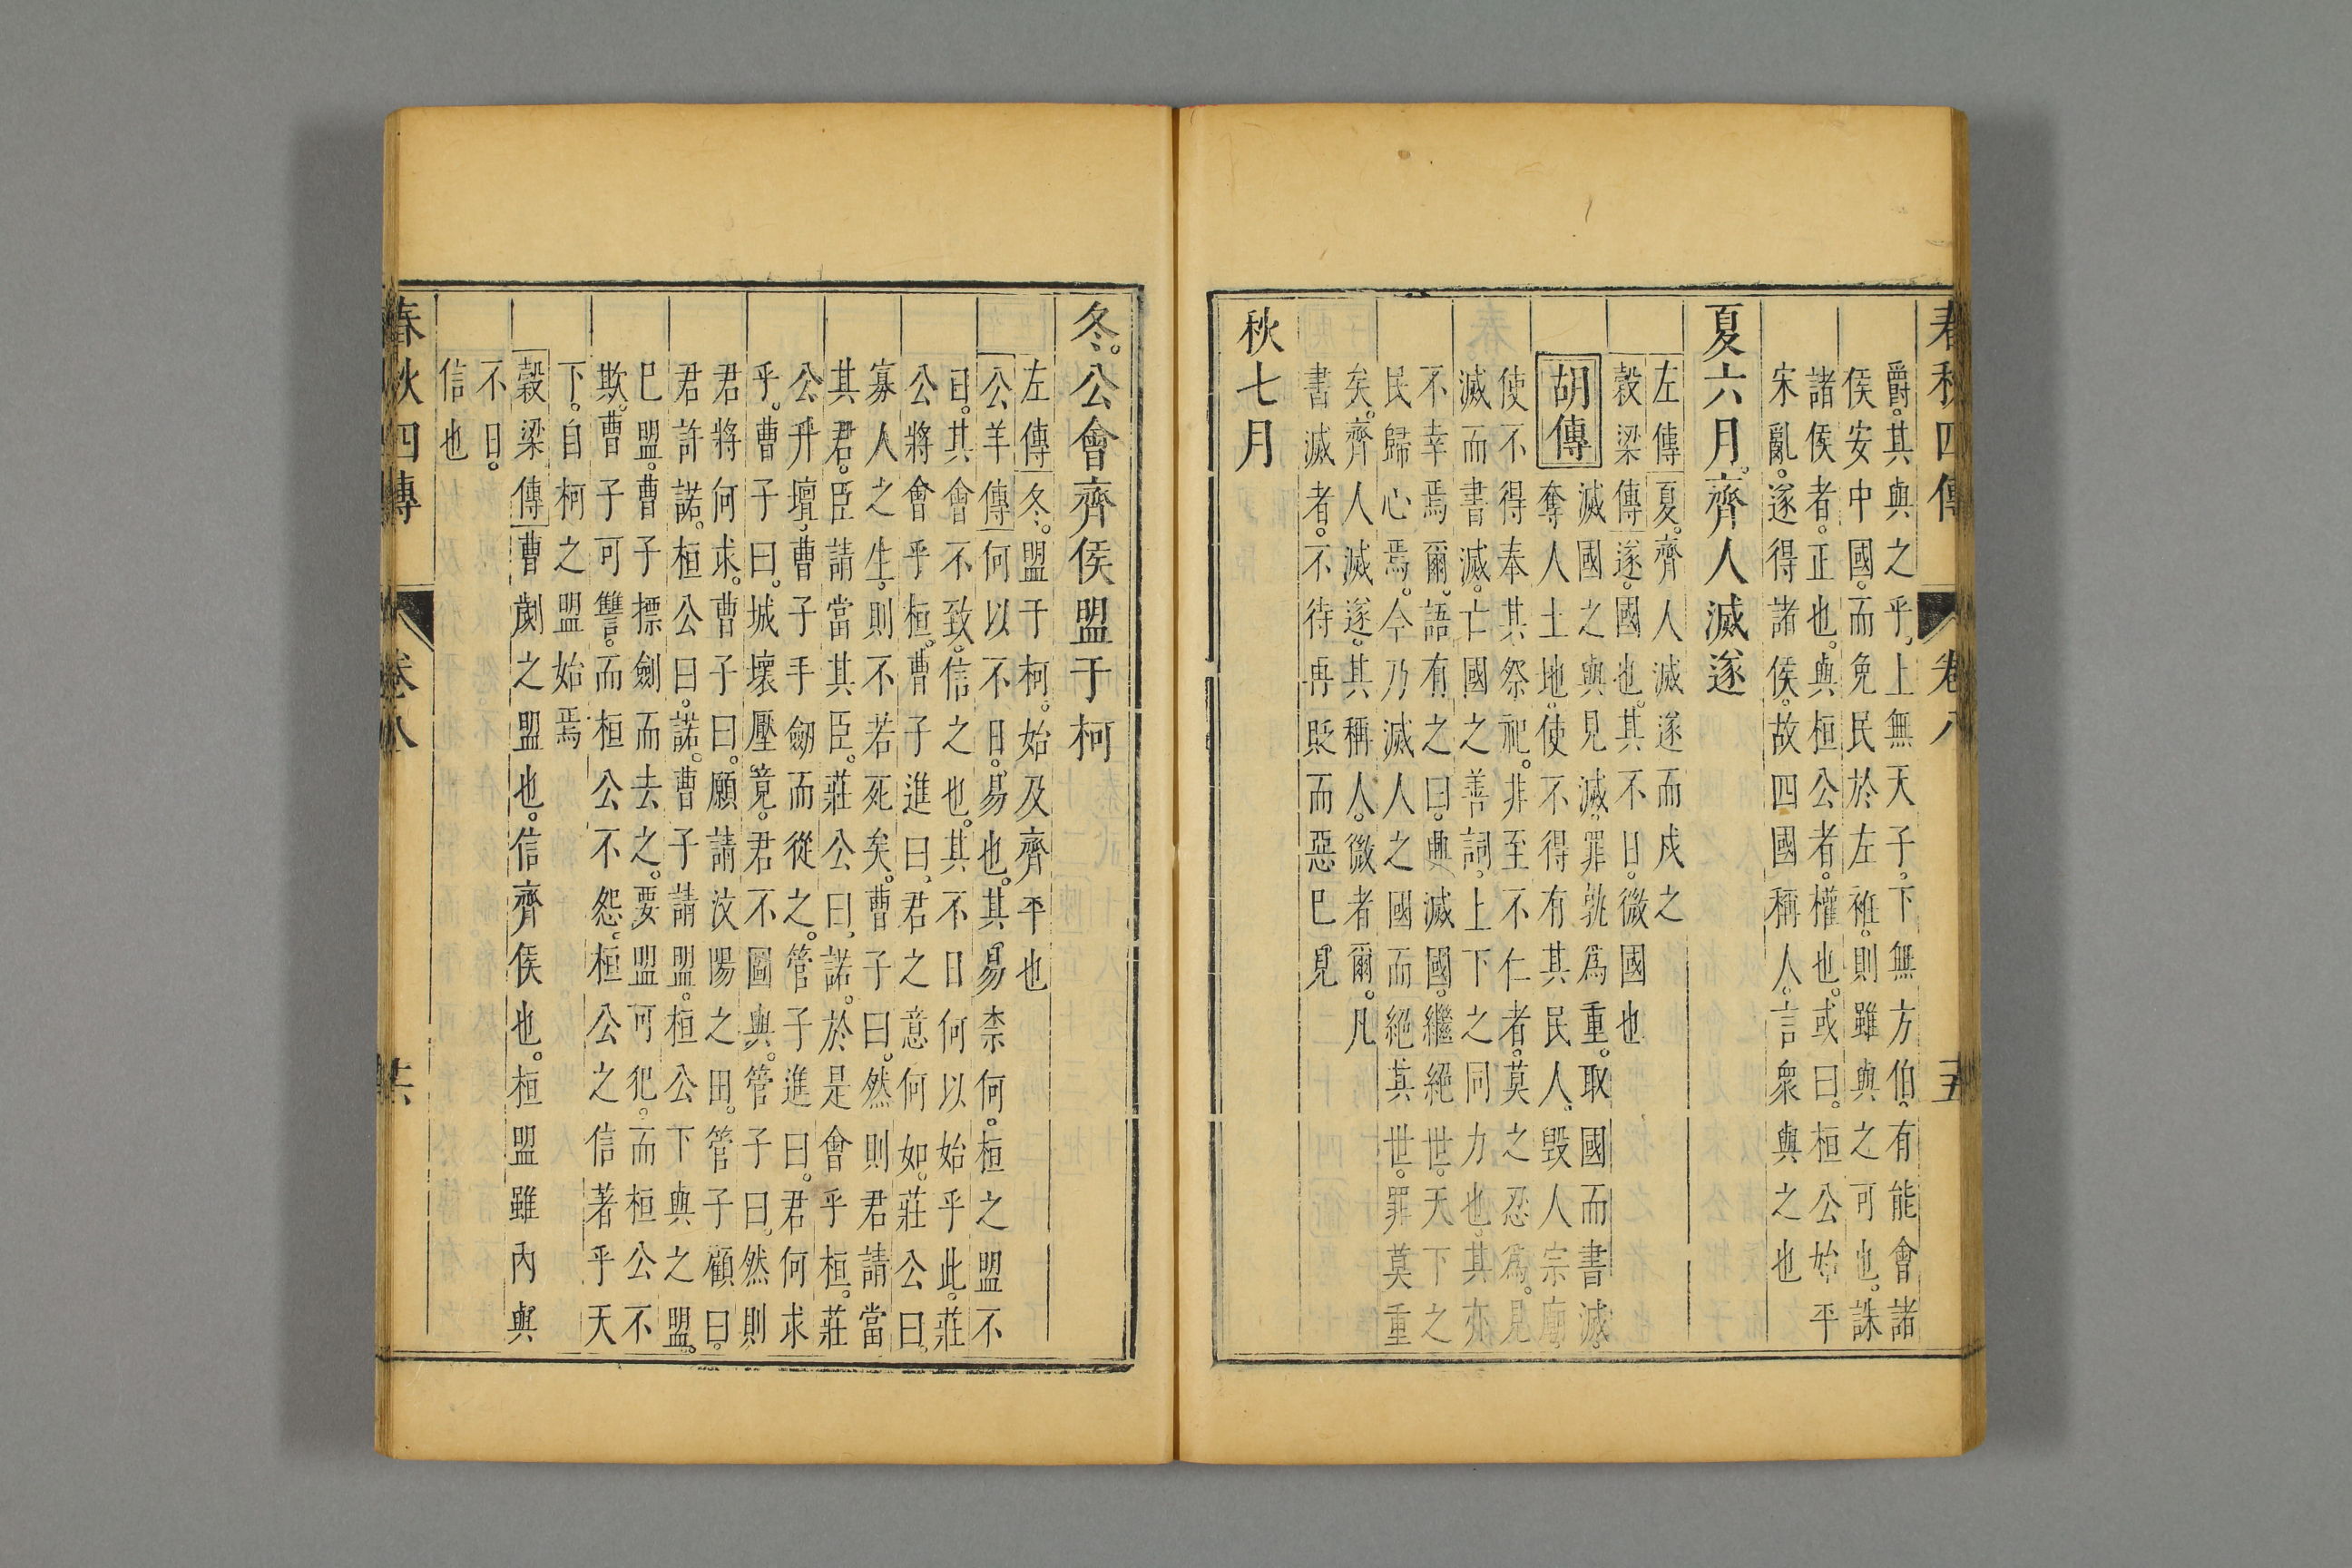 春秋四傳 卷八 五
爵。其與之乎。上無天子。下無方伯。有能會諸
侯安中國。而免民於左袵。則雖與之可也。誅
諸侯者。正也。與桓公者。權也。或曰。桓公始平
宋亂。遂得諸侯。故四國稱人。言衆與之也
夏六月。齊人滅遂
左傳夏。齊人滅遂而戍之
穀梁傳遂。國也。其不日。微國也
胡傳
滅國之與見滅。罪孰爲重。取國而書滅。
奪人土地。使不得有其民人。毀人宗廟。
使不得奉其祭祀。非至不仁者。莫之忍爲。見
滅而書滅。亡國之善詞。上下之同力也。其亦
不幸焉爾。語有之曰。興滅國。繼絕世。天下之
民歸心焉。今乃滅人之國而絕其世。罪莫重
矣。齊人滅遂。其稱人。微者爾。凡
書滅者。不待再貶而惡已見
秋七月
冬。公會齊侯盟于柯
左傳冬。盟于柯。始及齊平也
公羊傳何以不日。易也。其易柰何。桓之盟不
日。其會不致。信之也。其不日何以始乎此。莊
公將會乎桓。曹子進曰。君之意何如。莊公曰。
寡人之生。則不若死矣。曹子曰。然則君請當
其君。臣請當其臣。莊公曰。諾。於是會乎桓。莊
公升壇。曹子手劒而從之。管子進曰。君何求
乎。曹子曰。城壞壓竟。君不圖與。管子曰。然則
君將何求。曹子曰。願請汶陽之田。管子顧曰。
君許諾。桓公曰。諾。曹子請盟。桓公下與之盟。
巳盟。曹子摽劍而去之。要盟可犯。而桓公不
欺。曹子可讐。而桓公不怨。桓公之信著乎天
下。自柯之盟始焉
穀梁傳曹劌之盟也。信齊侯也。桓盟雖內與
不日。
信也
春秋四傳 卷八